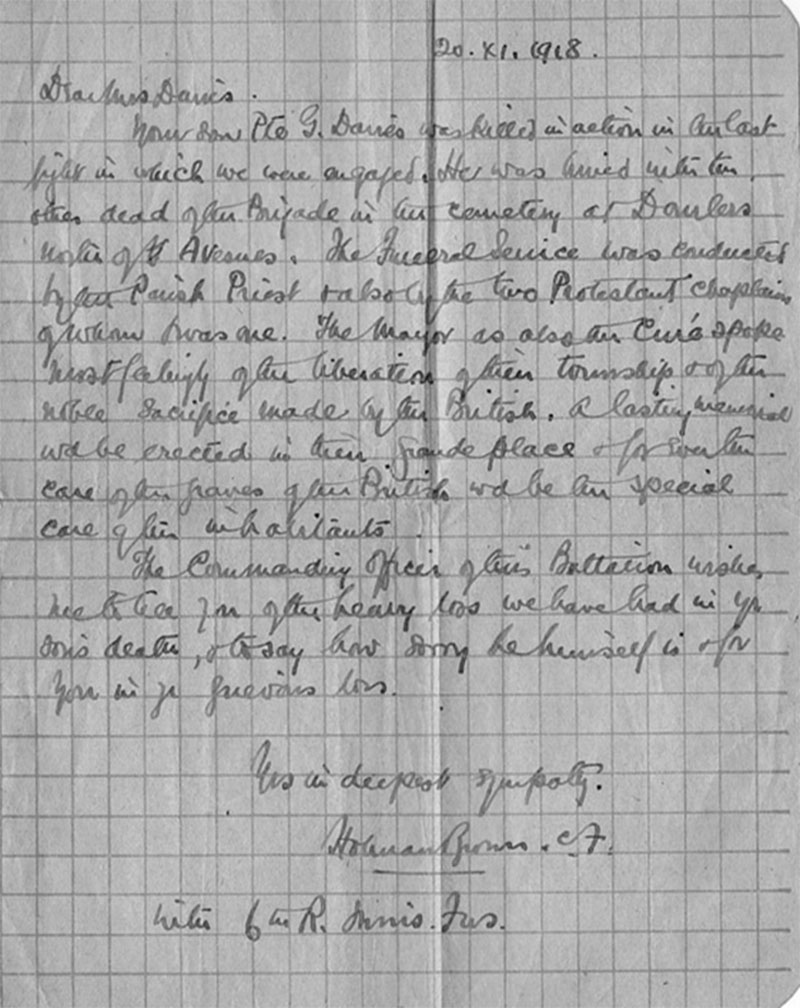 20. XI. 1918.
Dear Mrs Davies.
Your son Pte G. Davies was killed in action in the last
fight in which we were engaged. He was buried with the
other dead of the Brigade in the cemetery at Dourlers
North of Avesnes. The Funeral Service was conducted
by the Parish Priest & also by the two Protestant Chaplains
of whom I was one. The Mayor as also the Curé spoke
most feelingly of the liberation of their township & of the
noble sacrifice made by the British. A lasting memorial
wd be erected in their grande place & for ever the
care of the graves of the British wd be the special
care of the inhabitants.
The Commanding Officer of this Battalion wishes
me to tell you of the heavy loss we have had in yr
son's death, & to say how sorry he himself is & for
you in yr grievous loss.
Yrs in deepest sympathy.
Holman Brown. C.F.
with 6th R. Innis. Fus.